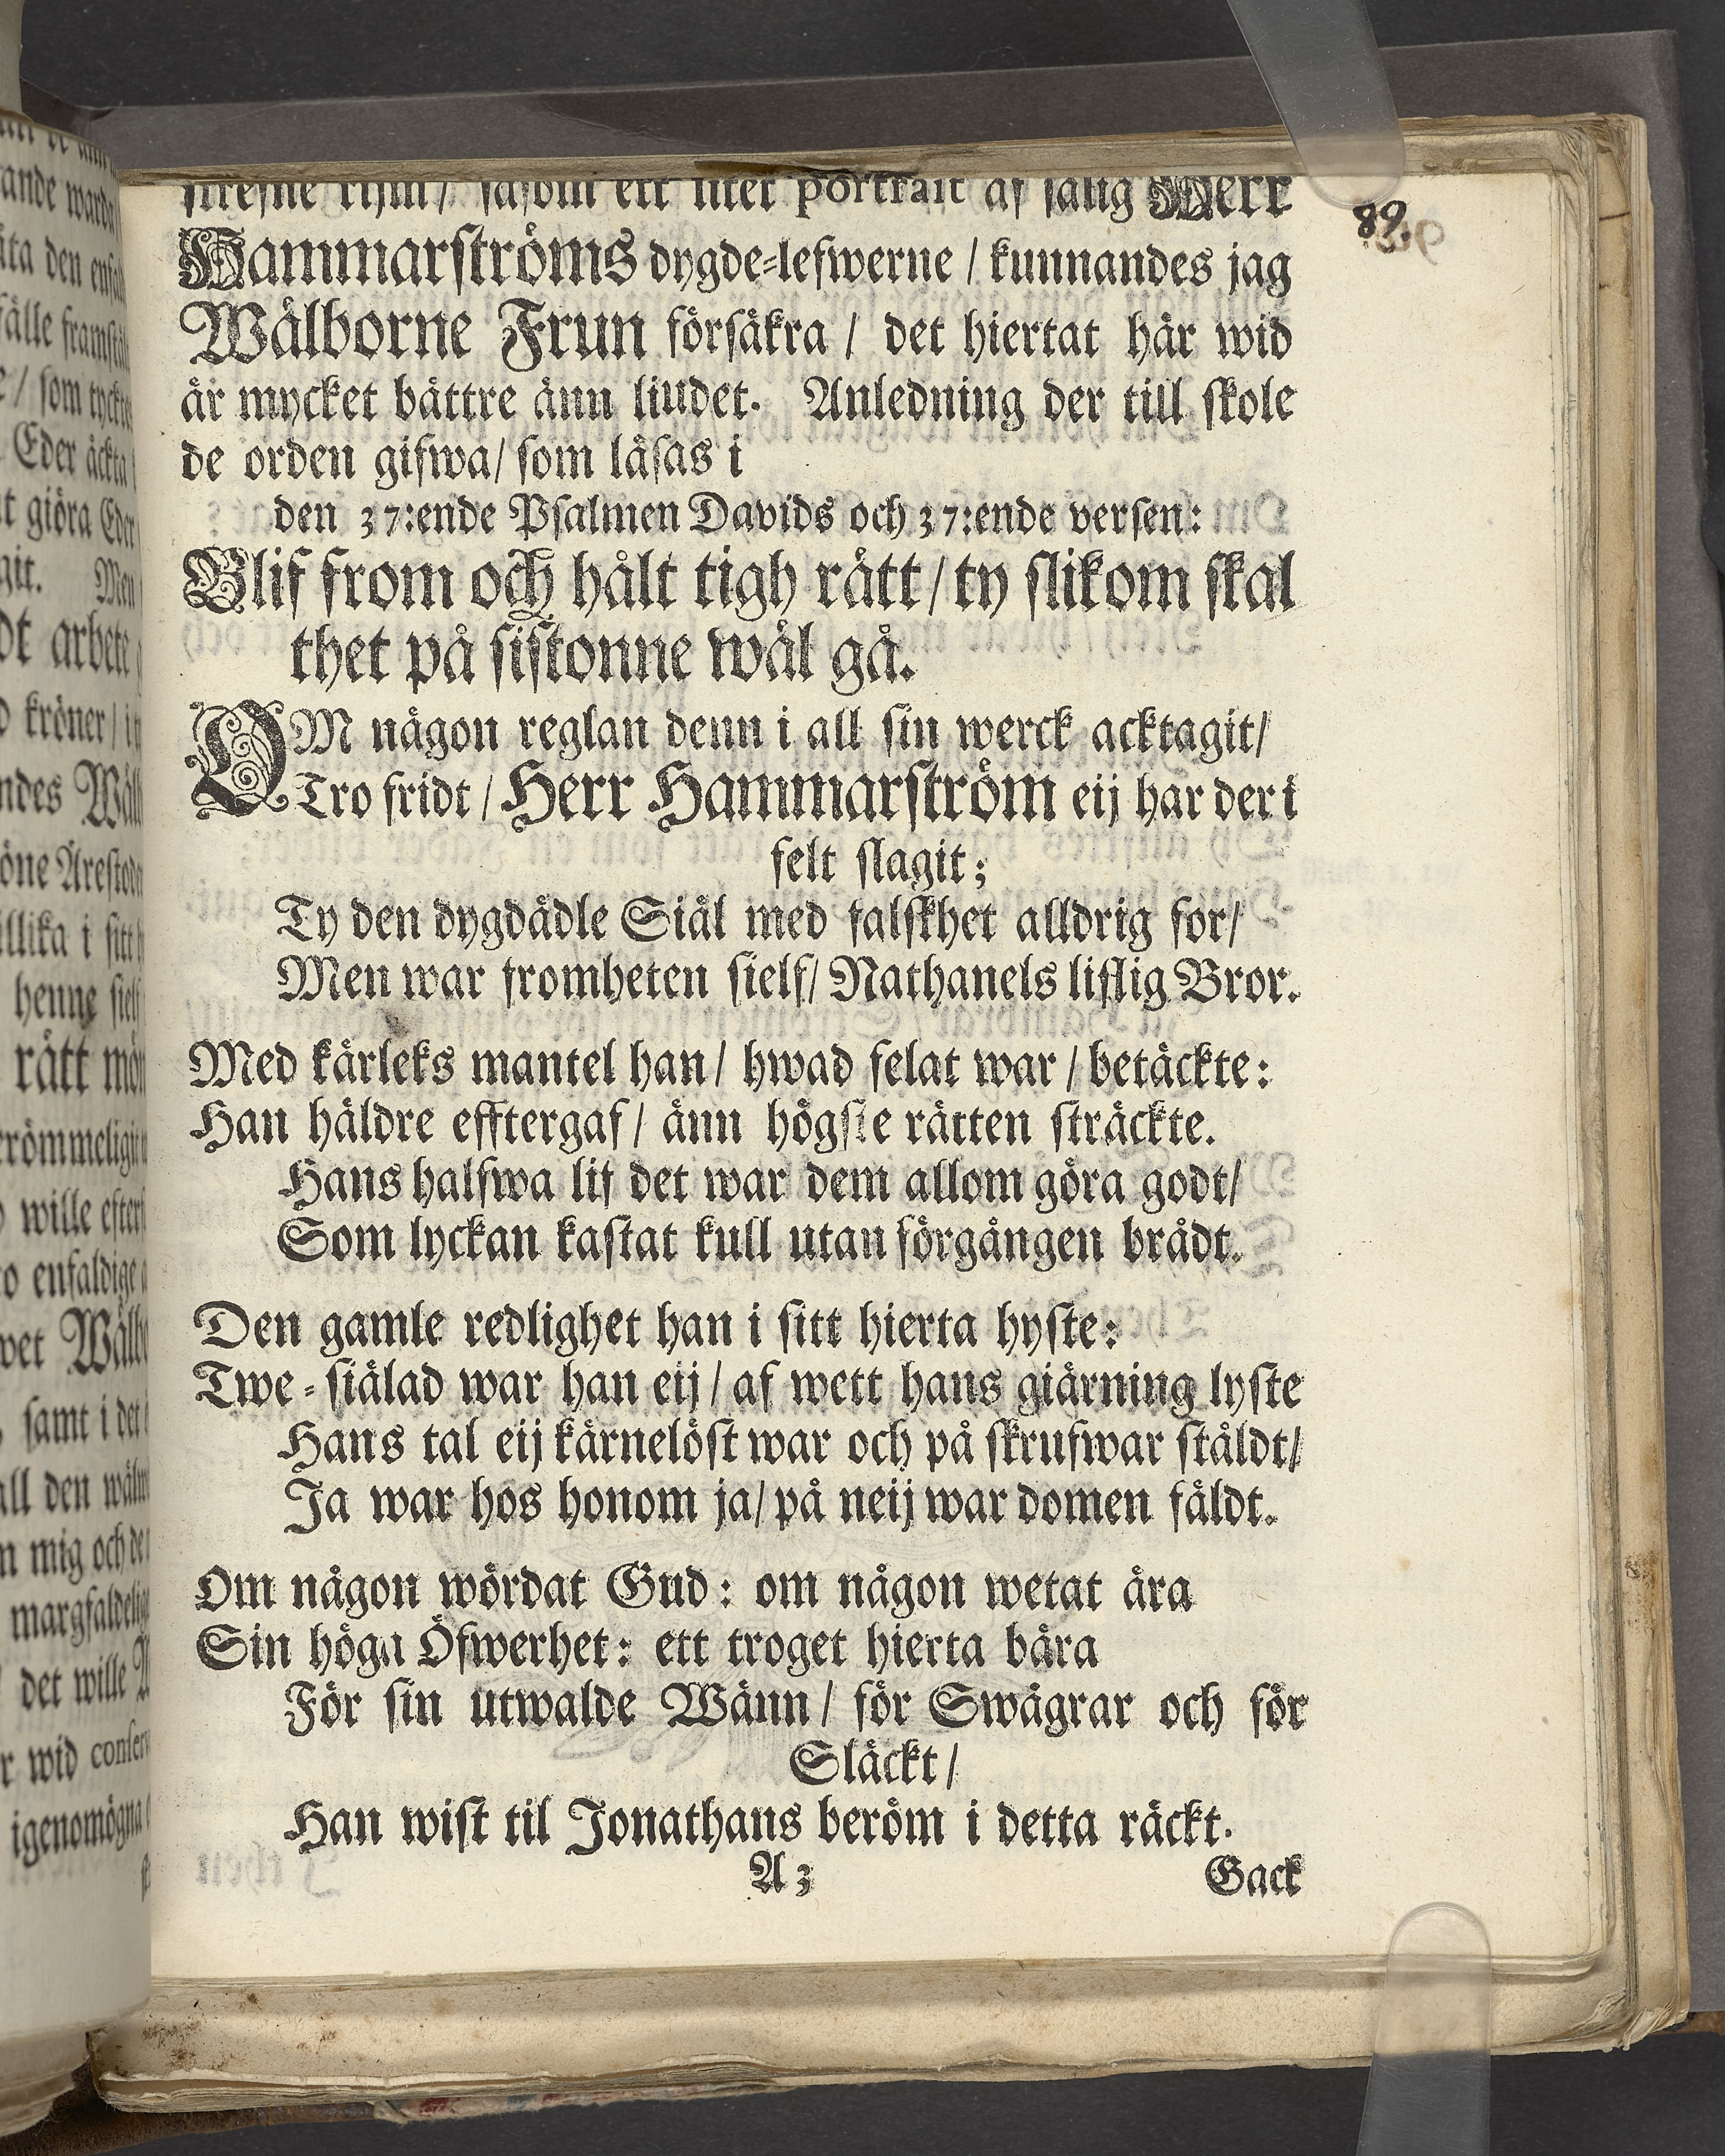 ſtrefne rijm / såsom ett litet portrait af salig Herr
89.
Hammarſtröms dygde-lefwerne / kunnandes jag
Wälborne Frun förſäkra / det hiertat här wid
är mycket bättre änn liudet. Anledning der till ſkole
de orden gifwa / ſom läſas i
den 37:ende Pſalmen Davids och 37:ende verſen:
Blif from och hålt tigh rätt / ty ſlikom ſkal
thet på ſiſtonne wäl gå.
OM någon reglan denn i all ſin werck acktagit /
Tro fridt / Herr Hammarſtröm eij har der i
felt ſlagit;
Ty den dygdädle Siäl med falſkhet alldrig for /
Men war fromheten ſielf / Nathanels liflig Bror.
Med kärleks mantel han / hwad felat war / betäckte:
Han häldre efftergaf / änn högſte rätten ſträckte.
Hans halfwa lif det war dem allom göra godt /
Som lyckan kaſtat kull utan förgången brådt.
Den gamle redlighet han i ſitt hierta hyſte:
Twe-ſiälad war han eij / af wett hans giärning lyſte
Hans tal eij kärnelöſt war och på ſkrufwar ſtäldt /
Ja war hos honom ja / på neij war domen fäldt.
Om någon wördat Gud: om någon wetat ära
Sin höga Öfwerhet: ett troget hierta bära
För ſin utwalde Wänn / för Swägrar och för
Släckt /
Han wiſt til Jonathans beröm i detta räckt.
A 3
Gack